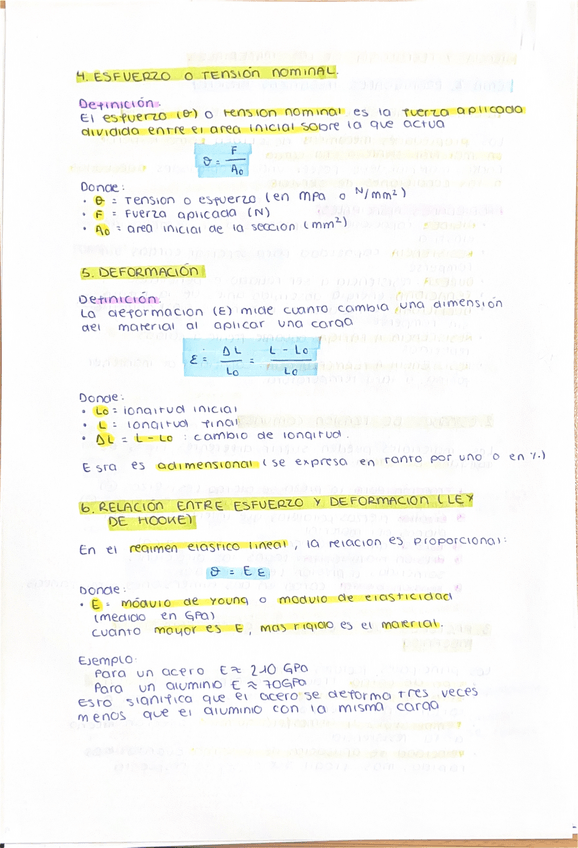 4. ESFUERZO O TENSIÓN NOMINAL.
Definición.
El esfuerzo (σ) o tension nominal es la fuerza aplicada
dividida entre el area inicial sobre la que actua
σ = F / A₀
Donde:
• σ = Tension o esfuerzo (en MPa o N/mm²)
• F = Fuerza aplicada (N)
• A₀ = area inicial de la seccion (mm²)
5. DEFORMACIÓN
Definición.
La deformacion (E) mide cuanto cambia una dimensión
del material al aplicar una carga
ε = ΔL / L₀ = L - L₀ / L₀
Donde:
• L₀ = longitud inicial
• L = longitud final
• ΔL = L - L₀ : cambio de longitud.
Esta es adimensional (se expresa en tanto por uno o en %)
6. RELACIÓN ENTRE ESFUERZO Y DEFORMACION (LEY
DE HOOKE)
En el regimen elastico lineal, la relacion es proporcional:
σ = E ε
Donde:
• E = módulo de Young o modulo de elasticidad
(medido en GPa)
cuanto mayor es E, mas rigido es el material.
Ejemplo:
Para un acero E ≈ 210 GPa
Para un aluminio E ≈ 70GPa
Esto significa que el acero se deforma tres veces
menos que el aluminio con la misma carga